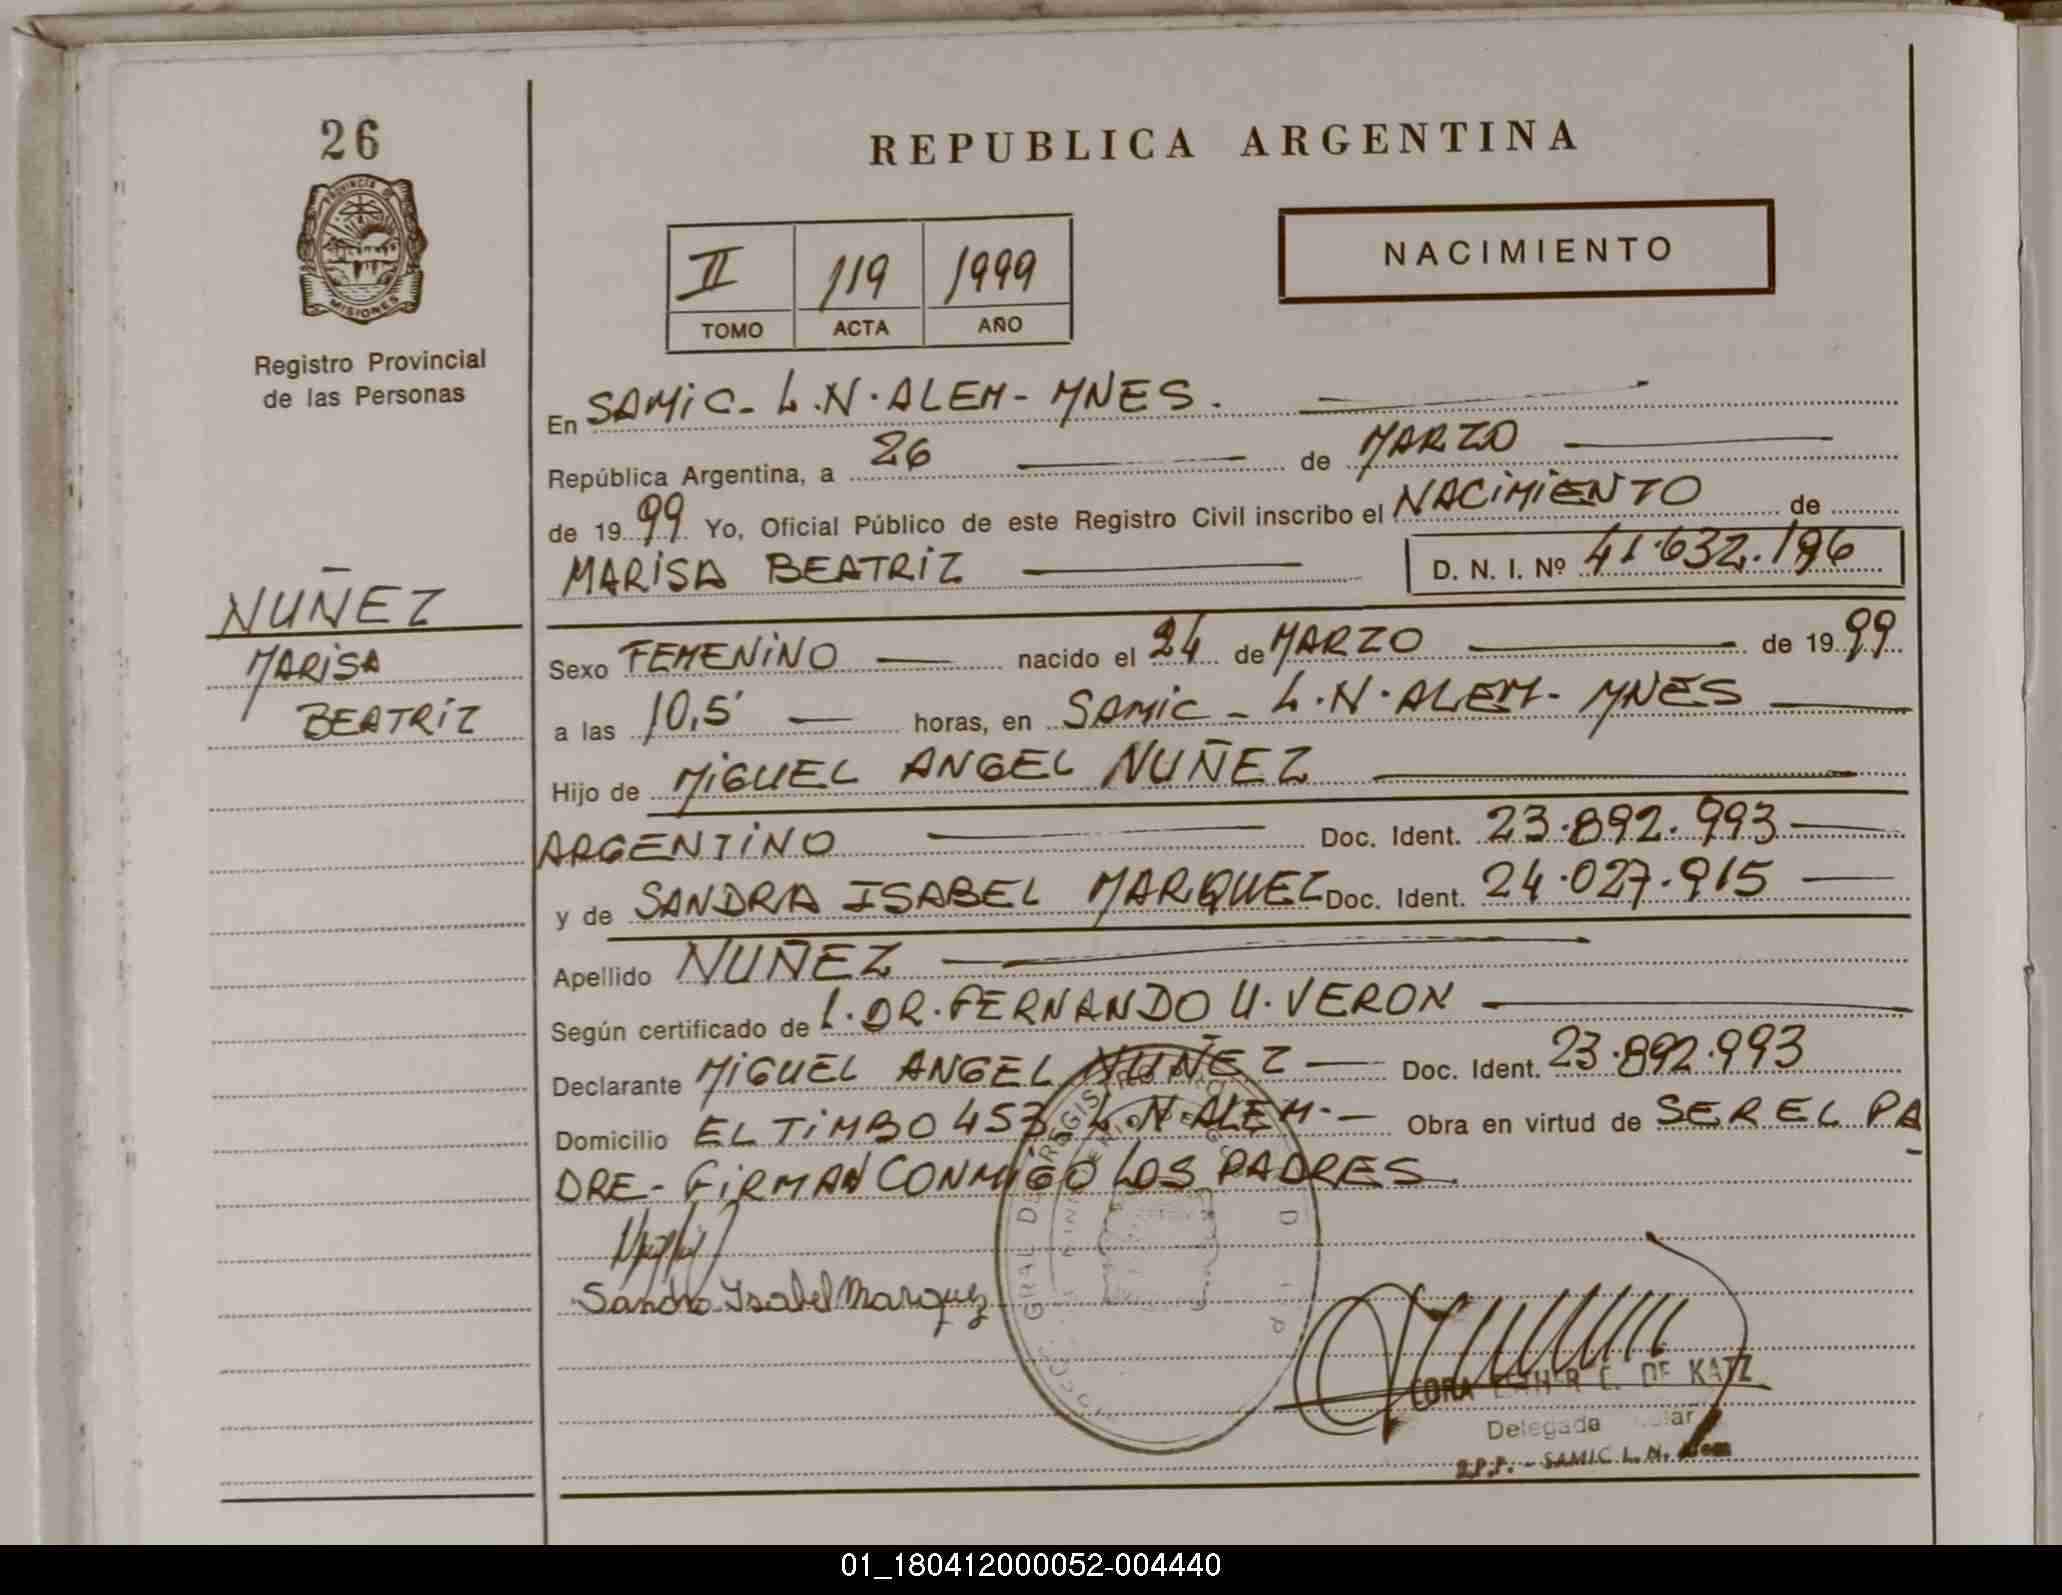 26
REPUBLICA ARGENTINA
PROVINCIA DE
MISIONES
Registro Provincial
de las Personas
II 119 1999
TOMO ACTA AÑO
NACIMIENTO
En SAMIC - L.N. ALEM - MNES.
República Argentina, a 26 de MARZO
de 1999 Yo, Oficial Público de este Registro Civil inscribo el NACIMIENTO de
MARISA BEATRIZ D. N. I. Nº 41.632.196
NUÑEZ
MARISA
BEATRIZ
Sexo FEMENINO nacido el 24 de MARZO de 1999
a las 10,5' horas, en SAMIC - L.N. ALEM - MNES
Hijo de MIGUEL ANGEL NUÑEZ
ARGENTINO Doc. Ident. 23.892.993
y de SANDRA ISABEL MARQUEZ Doc. Ident. 24.027.915
Apellido NUÑEZ
Según certificado de L. DR. FERNANDO U. VERON
Declarante MIGUEL ANGEL NUÑEZ Doc. Ident. 23.892.993
Domicilio EL TIMBO 453 L.N. ALEM - Obra en virtud de SER EL PA
DRE - FIRMAN CONMIGO LOS PADRES
Sandra Isabel Marquez
DE KATZ
Delegada
R.P.P. - SAMIC L. N. Alem
01_180412000052-004440